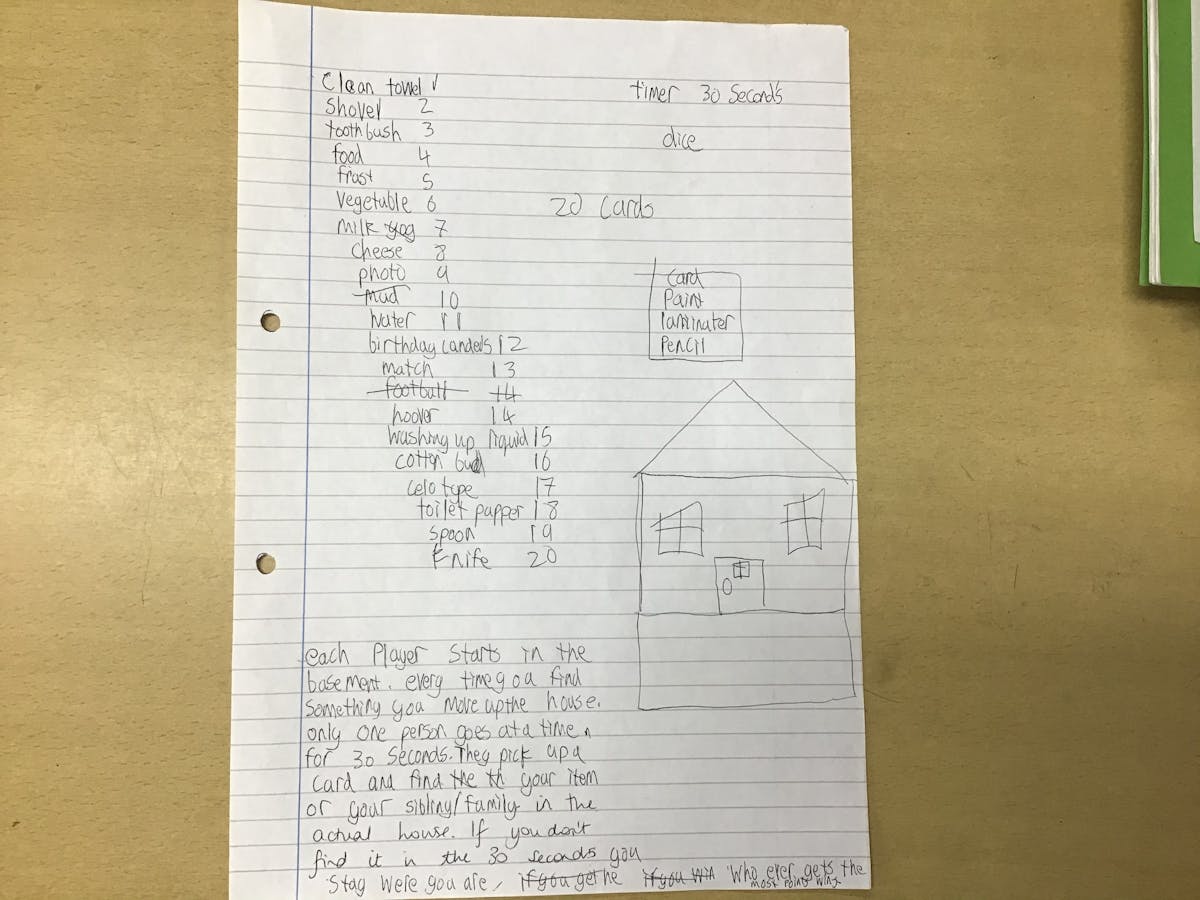 Clean towel
Shovel 2
toothbush 3
food 4
frust 5
Vegetable 6
Milk yog 7
Cheese 8
photo 9
mud 10
Water 11
birthday candels 12
match 13
football 14
hoover 14
washing up liquid 15
cotton bud 16
celo type 17
toilet papper 18
Spoon 19
Knife 20
timer 30 Second's
dice
20 Cards
Card
Paint
laminater
Pencil
each Player Starts in the
basement. every time you find
Something you Move up the house.
only one person goes at a time
for 30 Seconds. They pick up a
Card and find the th your item
or your sibling/family in the
actual house. If you don't
find it in the 30 seconds you
Stay Were you are, if you get he if you win Who ever gets the
most point wins